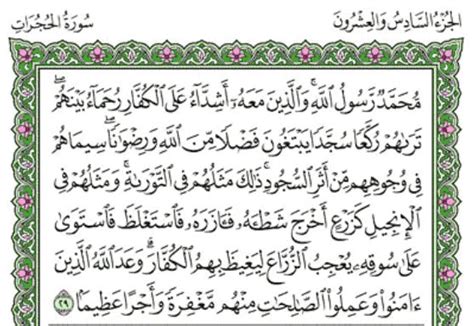 الجزء السادس والعشرون سورة الحجرات
مُّحَمَّدٌ رَّسُولُ ٱللَّهِ ۚ وَٱلَّذِينَ مَعَهُۥٓ أَشِدَّآءُ عَلَى ٱلْكُفَّارِ رُحَمَآءُ بَيْنَهُمْ ۖ
تَرَىٰهُمْ رُكَّعًا سُجَّدًا يَبْتَغُونَ فَضْلًا مِّنَ ٱللَّهِ وَرِضْوَٰنًا ۖ سِيمَاهُمْ
فِى وُجُوهِهِم مِّنْ أَثَرِ ٱلسُّجُودِ ۚ ذَٰلِكَ مَثَلُهُمْ فِى ٱلتَّوْرَىٰةِ ۚ وَمَثَلُهُمْ فِى
ٱلْإِنجِيلِ كَزَرْعٍ أَخْرَجَ شَطْـَٔهُۥ فَـَٔازَرَهُۥ فَٱسْتَغْلَظَ فَٱسْتَوَىٰ
عَلَىٰ سُوقِهِۦ يُعْجِبُ ٱلزُّرَّاعَ لِيَغِيظَ بِهِمُ ٱلْكُفَّارَ ۗ وَعَدَ ٱللَّهُ ٱلَّذِينَ
ءَامَنُوا۟ وَعَمِلُوا۟ ٱلصَّٰلِحَٰتِ مِنْهُم مَّغْفِرَةً وَأَجْرًا عَظِيمًۢا ٢٩